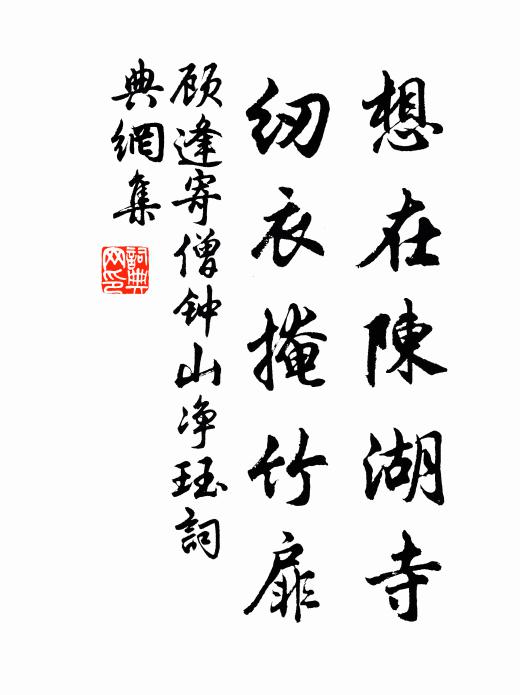 想在陳湖寺
纫衣掩竹扉
顾逢寄僧钟山净珏詞
典網集
詞典網印